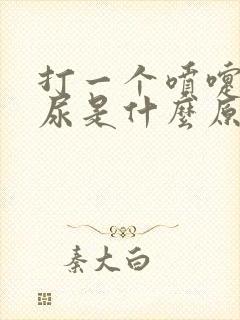 打一个喷嚏
尿是什麼原
秦大白